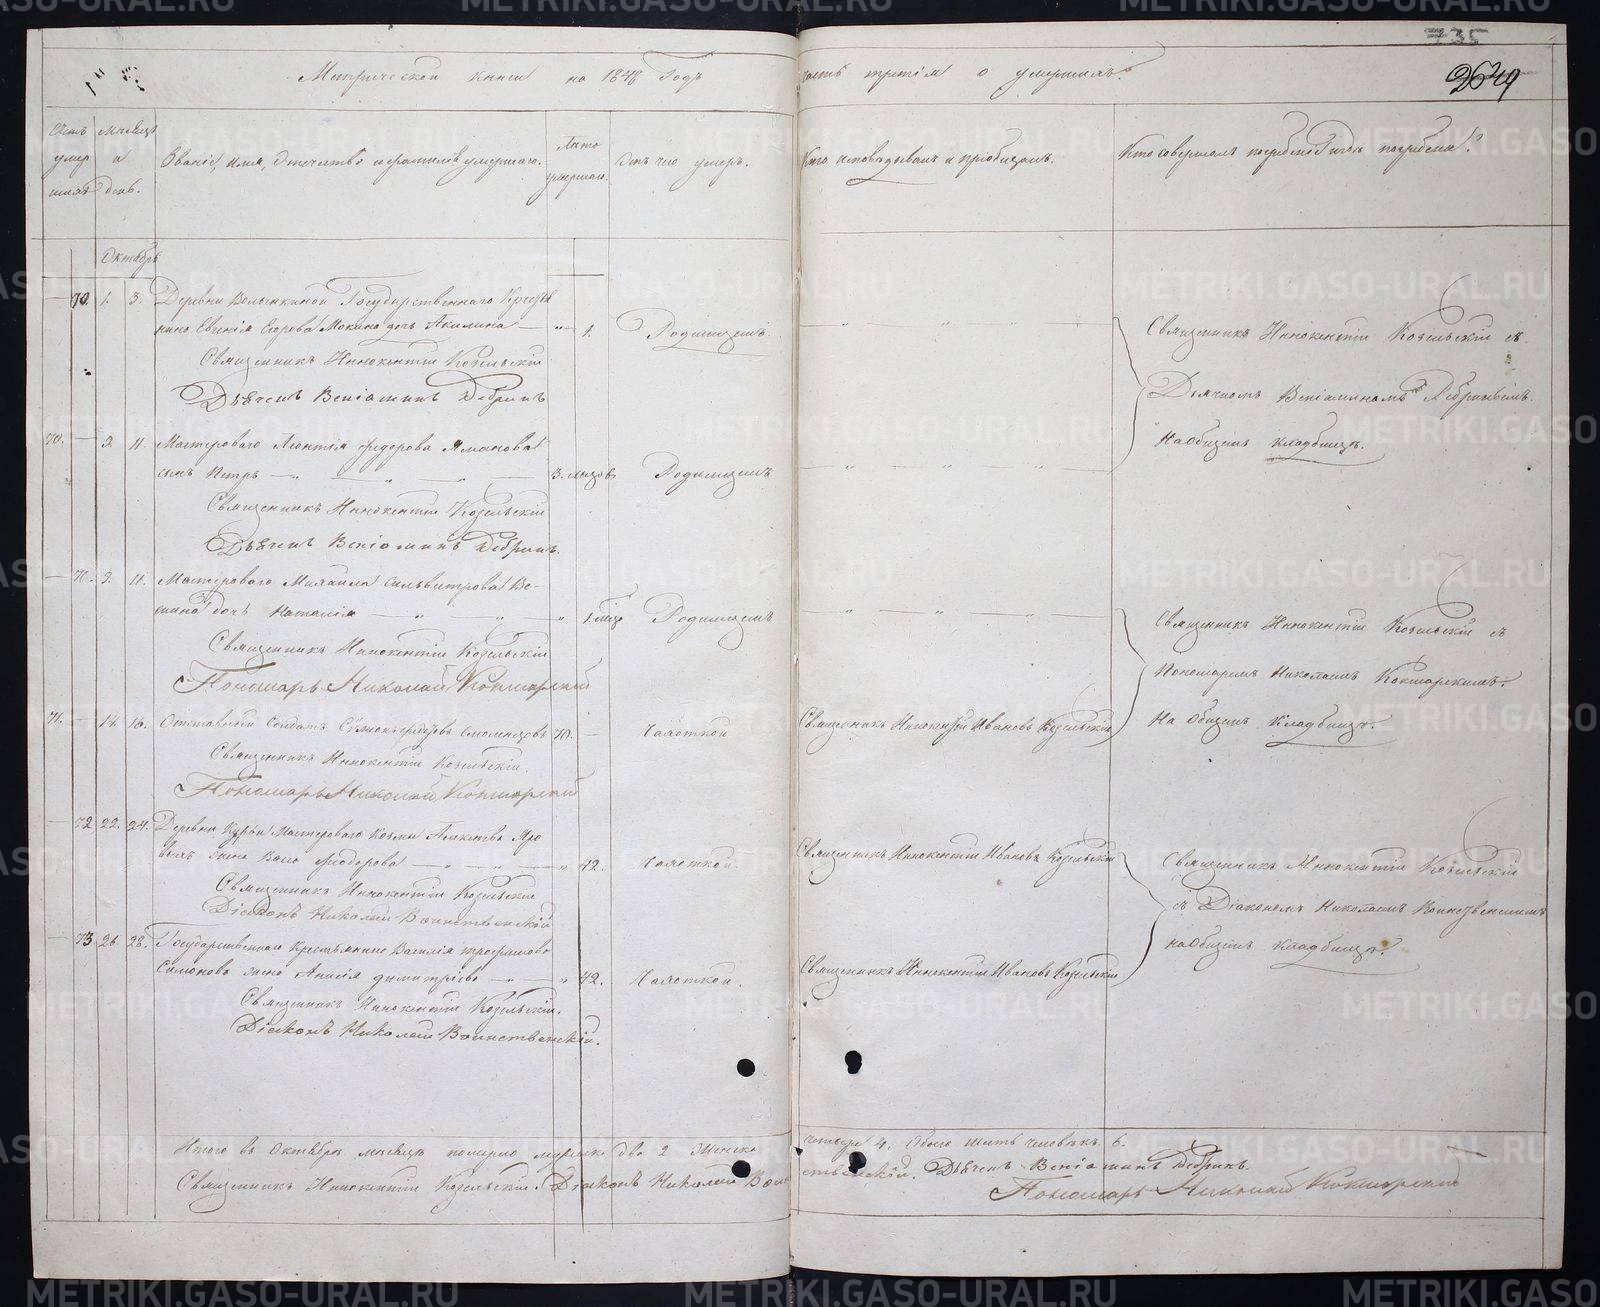 Метрической книги на 1848 Годъ
часть третія о умершихъ.
735
Счетъ умер шихъ
Мѣсяцъ и день.
Званіе, имя, отечество и фамилія умершаго.
Лѣта умершаго.
Отъ чего умеръ.
Кто исповѣдывалъ и пріобщалъ.
Кто совершалъ погребеніе и гдѣ погребены?
Октябрь
70. 1. 3. Деревни Волынкиной Государственнаго Кресть
Егорова Мокина дочь Акилина — „ 1. Родимцемъ.
Священникъ Иннокентій Козельскій
Дьячекъ Веніаминъ Дебринъ
Священникъ Иннокентій Козельскій съ
Дьячкомъ Веніаминомъ
На Общемъ кладбищѣ.
70. — 9. 11. Мастероваго Леонтія Федорова
сынъ Петръ — 3. мѣсяцов Родимцемъ
Священникъ Иннокентій Козельскій
Дьячекъ Веніаминъ Дебринъ.
— 71. 9. 11. Мастероваго Михаила Сильвестрова Ве-
дочь Наталія — „ 1. Родимцемъ
Священникъ Иннокентій Козельскій
Пономарь Николай Кокшарскій
Священникъ Иннокентій Козельскій съ
Пономаремъ Николаемъ Кокшарскимъ.
На Общемъ Кладбищѣ.
71. — 14. 16. Отставный Солдатъ 70. — Чахоткой
Священникъ Иннокентій Ивановъ Козельскій
Священникъ Иннокентій Козельскій.
Пономарь Николай Кокшарскій
— 72. 22. 24. Деревни Курьи Мастероваго Козмы
жена Федорова — „ 42. Чахоткой.
Священникъ Иннокентій Ивановъ Козельскій
Священникъ Иннокентій Козельскій
Діаконъ Николай Воинственскій
Священникъ Иннокентій Козельскій
съ Діакономъ Николаемъ Воинственскимъ
на Общемъ Кладбищѣ.
— 73. 26. 28. Государственнаго Крестьянина Василія
Симонова жена Анисія Димитріева — „ 42. Чахоткой.
Священникъ Иннокентій Ивановъ Козельскій
Священникъ Иннокентій Козельскій.
Діаконъ Николай Воинственскій.
Итого въ Октябрѣ мѣсяцѣ померло мужеска два 2 Женска четыре 4. Обоего шесть человѣкъ. 6.
Священникъ Иннокентій Козельскій. Діаконъ Николай Воинственскій. Дьячекъ Веніаминъ Дебринъ.
Пономарь Николай Кокшарскій
METRIKI.GASO-URAL.RU